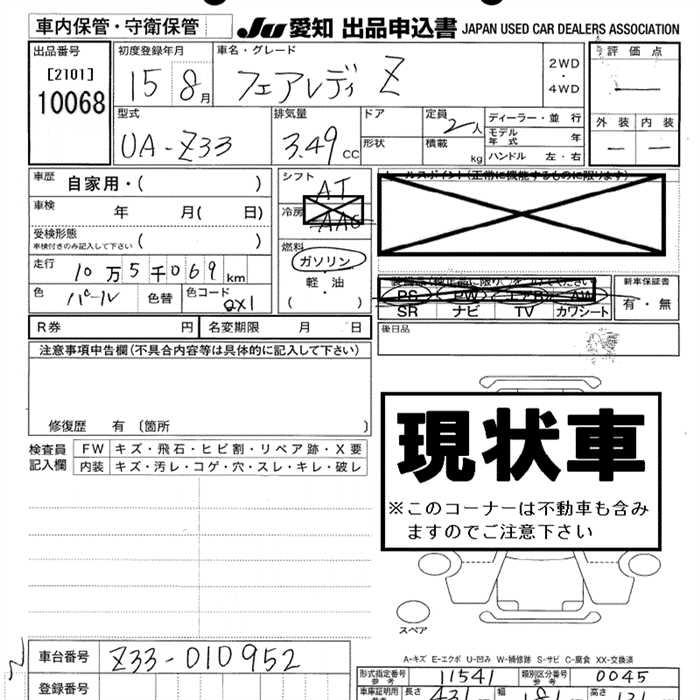 車内保管・守衛保管
JU 愛知 出品申込書 JAPAN USED CAR DEALERS ASSOCIATION
出品番号
[2101]
10068
初度登録年月
15 8月
車名・グレード
フェアレディ Z
2WD
・
4WD
評価点
―
外装 内装
― ―
型式
UA-Z33
排気量
3.49cc
ドア
形状
定員
2人
積載
kg
ディーラー・並行
モデル年式 年
ハンドル 左・右
車歴 自家用・( )
車検 年 月( 日)
受検形態
車検付きのみ記入して下さい ( )
走行 10万5千069km
色 パール 色替 色コード QX1
シフト
AT
冷房
AAC
燃料
ガソリン
・
軽・油
( )
PS PW エアB AW
SR ナビ TV カワシート
新車保証書
有・無
後日品
R券 円 名変期限 月 日
注意事項申告欄(不具合内容等は具体的に記入して下さい)
修復歴 有 〔箇所 〕
検査員
記入欄
FW キズ・飛石・ヒビ割・リペア跡・X要
内装 キズ・汚レ・コゲ・穴・スレ・キレ・破レ
現状車
※このコーナーは不動車も含み
ますのでご注意下さい
スペア
A-キズ E-エクボ U-凹み W-補修跡 S-サビ C-腐食 XX-交換済
車台番号 Z33-010952
登録番号
型式指定番号
参考
11541
類別区分番号
参考
0045
車庫証明用 長さ 431 幅 181